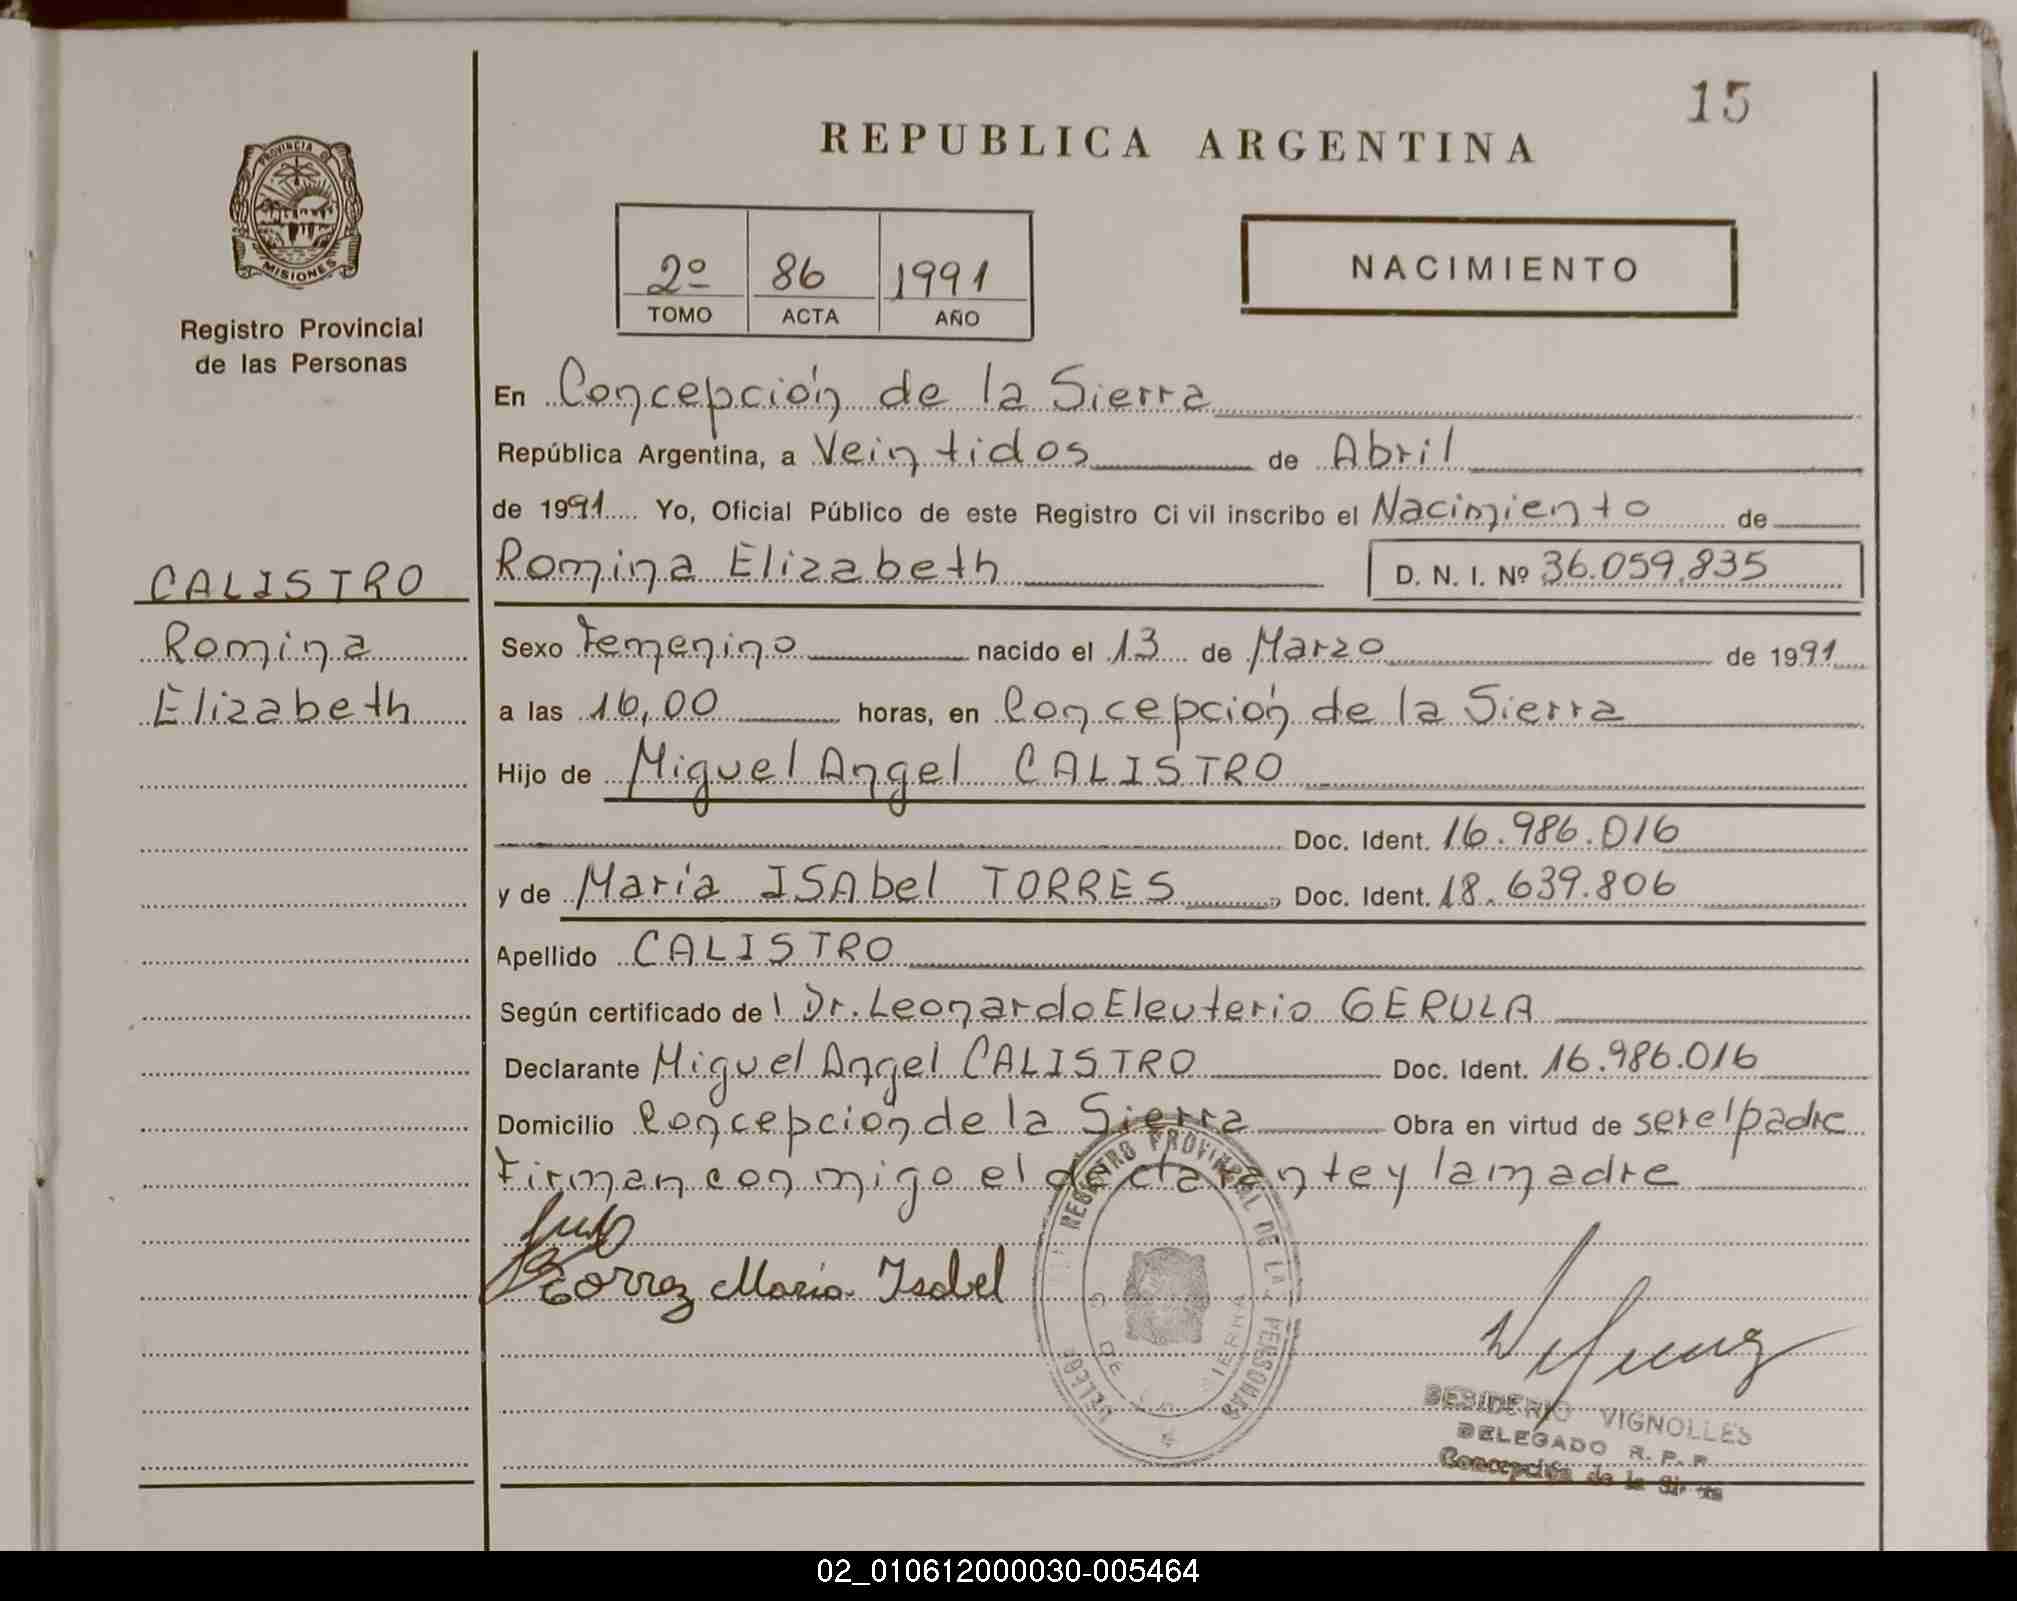 15
REPUBLICA ARGENTINA
PROVINCIA DE
MISIONES
Registro Provincial
de las Personas
2º 86 1991
TOMO ACTA AÑO
NACIMIENTO
En Concepción de la Sierra
República Argentina, a Veintidos de Abril
de 1991 Yo, Oficial Público de este Registro Ci vil inscribo el Nacimiento de
CALISTRO
Romina
Elizabeth
Romina Elizabeth D. N. I. Nº 36.059.835
Sexo Femenino nacido el 13 de Marzo de 1991
a las 16,00 horas, en Concepción de la Sierra
Hijo de Miguel Angel CALISTRO
Doc. Ident. 16.986.016
y de María ISAbel TORRES Doc. Ident. 18.639.806
Apellido CALISTRO
Según certificado de l Dr. Leonardo Eleuterio GERULA
Declarante Miguel Angel CALISTRO Doc. Ident. 16.986.016
Domicilio Concepción de la Sierra Obra en virtud de ser el padre
Firman con migo el declarante y la madre
Torrez María Isabel
REGISTRO PROVINCIAL DE LAS PERSONAS
DE LA SIERRA
DESIDERIO VIGNOLLES
DELEGADO R. P. P.
Concepción de la Sierra
02_010612000030-005464